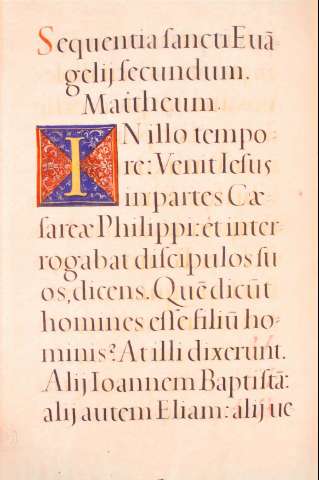 Sequentia ſancti Euã
gelij ſecundum.
Mattheum.
IN illo tempo
re: Venit Ieſus
in partes Cæ
ſareæ Philippi: et inter
rogabat diſcipulos ſu
os, dicens. Quẽ dicũt
homines eſſe filiũ ho
minis? At illi dixerunt.
Alij Ioannem Baptiſtã:
alij autem Eliam: alij ue